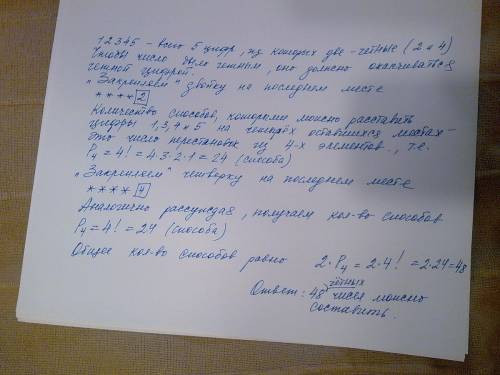 12345 – всего 5 цифр, из которых две – чётные (2 и 4)
Чтобы число было чётным, оно должно оканчиваться
чётной цифрой.
"Закрепляем" двойку на последнем месте
**** 2
Количество способов, которыми можно расставить
цифры 1, 3, 4 и 5 на четырёх оставшихся местах –
это число перестановок из 4-х элементов., т.е.
P₄ = 4! = 4·3·2·1 = 24 (способа)
"Закрепляем" четвёрку на последнем месте
**** 4
Аналогично рассуждая, получаем кол-во способов
P₄ = 4! = 24 (способа)
Общее кол-во способов равно 2·P₄ = 2·4! = 2·24 = 48
Ответ: 48 чётных чисел можно
составить.